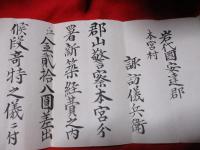 岩代國安達郡
本宮村
諏訪儀兵衛
郡山警察本宮分
署新築経費之内
金貳拾八圓差出
候段奇特之儀ニ付